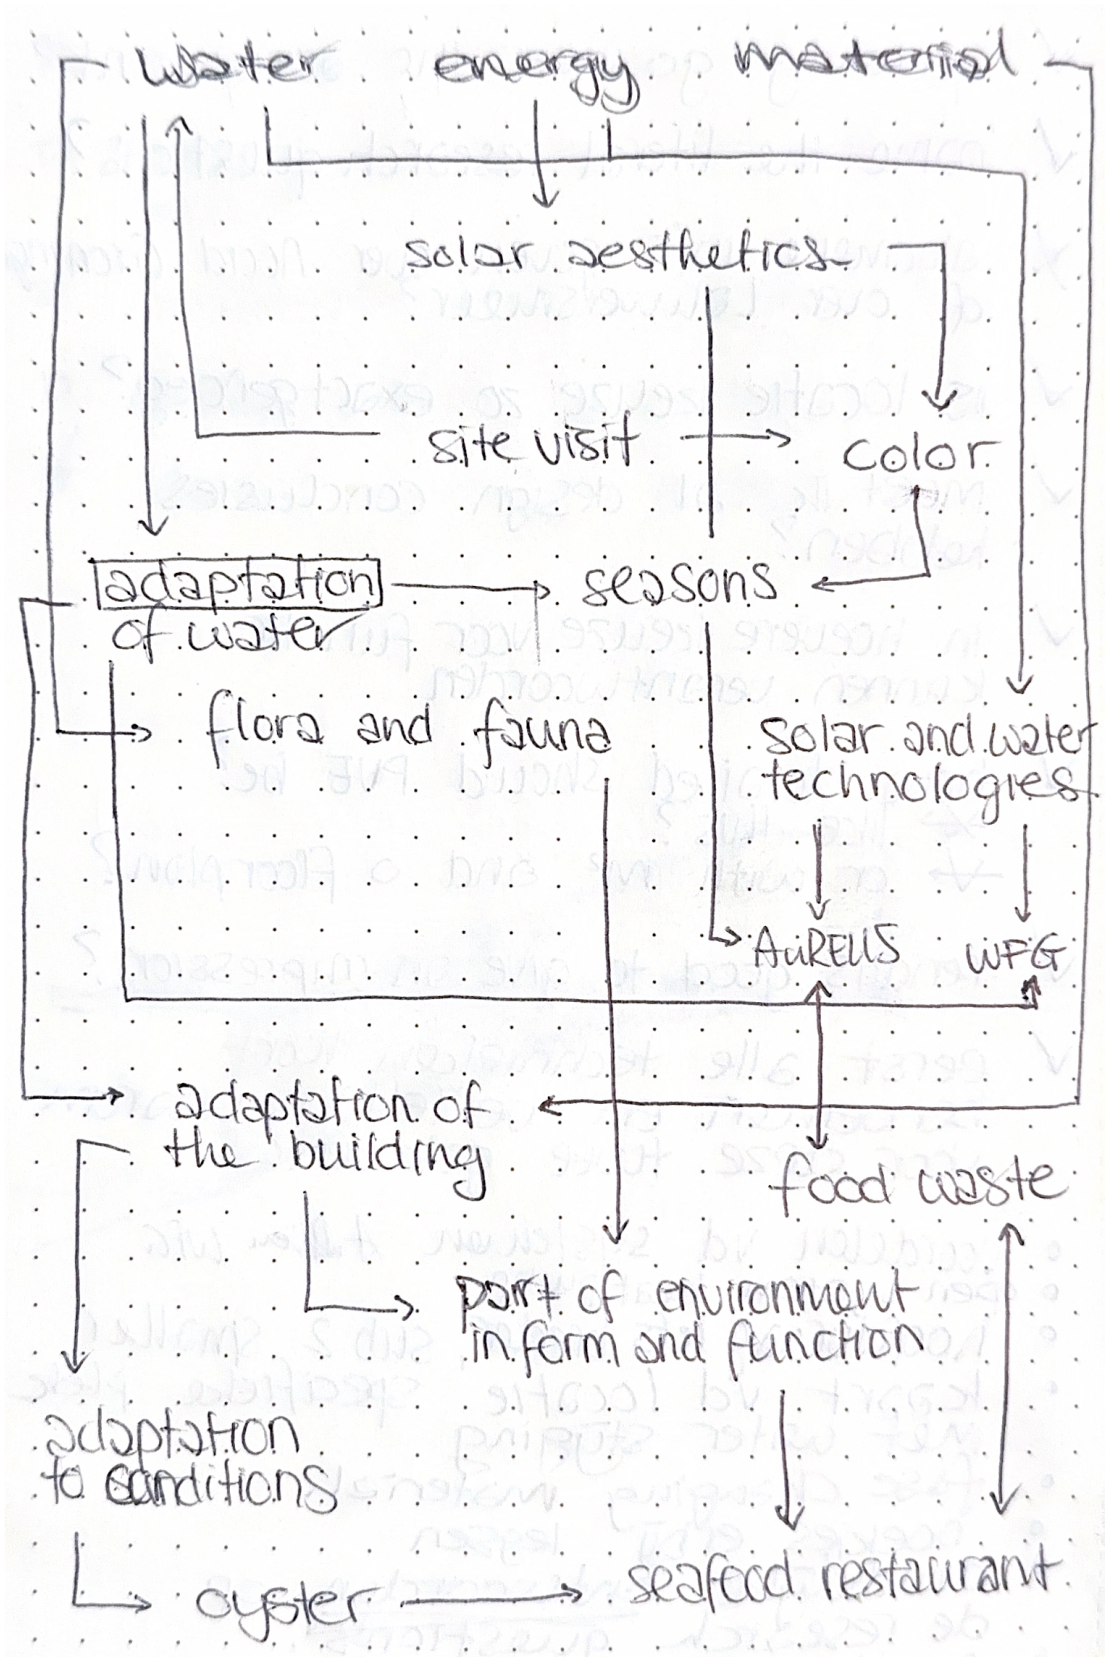 water energy material
solar aesthetics
site visit
color
adaptation
of water
seasons
flora and fauna
solar and water
technologies
AuREUS
WFG
adaptation of
the building
food waste
part of environment
in form and function
adaptation
to conditions
oyster
seafood restaurant